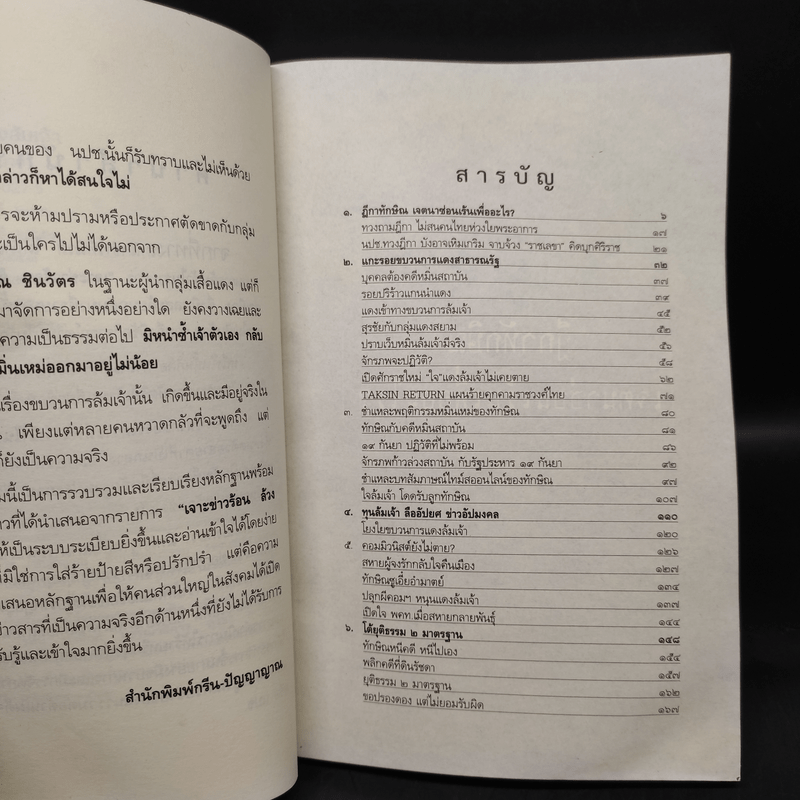 ยคนของ นปช.นั้นก็รับทราบและไม่เห็นด้วย
ล่าวก็หาได้สนใจไม่
รจะห้ามปรามหรือประกาศตัดขาดกับกลุ่ม
ะเป็นใครไปไม่ได้นอกจาก
ณ ชินวัตร ในฐานะผู้นำกลุ่มเสื้อแดง แต่ก็
มาจัดการอย่างหนึ่งอย่างใด ยังคงวางเฉยและ
ความเป็นธรรมต่อไป มิหนำซ้ำเจ้าตัวเอง กลับ
มิ่นเหม่ออกมาอยู่ไม่น้อย
นเรื่องขบวนการล้มเจ้านั้น เกิดขึ้นและมีอยู่จริงใน
เพียงแต่หลายคนหวาดกลัวที่จะพูดถึง แต่
ก็ยังเป็นความจริง
มนี้เป็นการรวบรวมและเรียบเรียงหลักฐานพร้อม
าวที่ได้นำเสนอจากรายการ "เจาะข่าวร้อน ล้วง
ห้เป็นระบบระเบียบยิ่งขึ้นและอ่านเข้าใจได้โดยง่าย
ที่มิใช่การใส่ร้ายป้ายสีหรือปรักปรำ แต่คือความ
เสนอหลักฐานเพื่อให้คนส่วนใหญ่ในสังคมได้เปิด
าวสารที่เป็นความจริงอีกด้านหนึ่งที่ยังไม่ได้รับการ
รับรู้และเข้าใจมากยิ่งขึ้น
สำนักพิมพ์กรีน-ปัญญาญาณ
สารบัญ
๑. ฎีกาทักษิณ เจตนาซ่อนเร้นเพื่ออะไร? ๖
ทวงถามฎีกา ไม่สนคนไทยห่วงใยพระอาการ ๑๗
นปช.ทวงฎีกา บังอาจเหิมเกริม จาบจ้วง "ราชเลขา" คิดบุกศิริราช ๒๑
๒. แกะรอยขบวนการแดงสาธารณรัฐ ๓๒
บุคคลต้องคดีหมิ่นสถาบัน ๓๗
รอยปริร้าวแกนนำแดง ๓๙
แดงเข้าทางขบวนการล้มเจ้า ๔๕
สุรชัยกับกลุ่มแดงสยาม ๕๒
ปราบเว็บหมิ่นล้มเจ้ามีจริง ๕๖
จักรภพจะปฏิวัติ? ๕๘
เปิดศักราชใหม่ "ใจ"แดงล้มเจ้าไม่เคยตาย ๖๒
TAKSIN RETURN แผนร้ายคุกคามราชวงศ์ไทย ๗๑
๓. ชำแหละพฤติกรรมหมิ่นเหม่ของทักษิณ ๘๐
ทักษิณกับคดีหมิ่นสถาบัน ๘๑
๑๙ กันยา ปฏิวัติที่ไม่พร้อม ๘๖
จักรภพก้าวล่วงสถาบัน กับรัฐประหาร ๑๙ กันยา ๙๒
ชำแหละบทสัมภาษณ์ไทม์สออนไลน์ของทักษิณ ๙๗
ใจล้มเจ้า โดดรับลูกทักษิณ ๑๐๗
๔. ทุนล้มเจ้า ลืออัปยศ ข่าวอัปมงคล ๑๑๐
โยงใยขบวนการแดงล้มเจ้า ๑๒๐
๕. คอมมิวนิสต์ยังไม่ตาย? ๑๒๖
สหายผู้จงรักกลับใจคืนเมือง ๑๒๗
ทักษิณชูเอี่ยอำมาตย์ ๑๓๔
ปลุกผีคอมฯ หนุนแดงล้มเจ้า ๑๓๗
เปิดใจ พคท.เมื่อสหายกลายพันธุ์ ๑๔๔
๖. โต้ยุติธรรม ๒ มาตรฐาน ๑๔๘
ทักษิณหนีคดี หนีไปเอง ๑๕๔
พลิกคดีที่ดินรัชดา ๑๕๗
ยุติธรรม ๒ มาตรฐาน ๑๖๒
ขอปรองดอง แต่ไม่ยอมรับผิด ๑๖๗